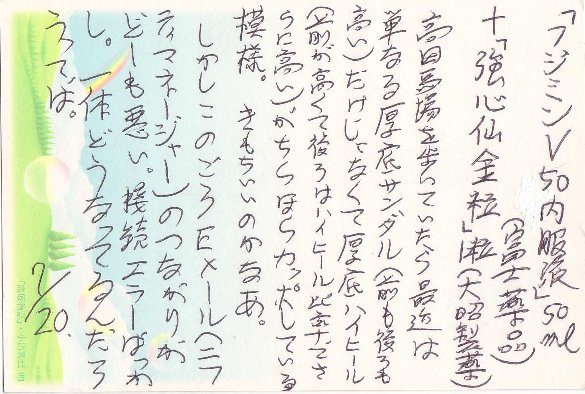 「フジミンV50内服液」50ml
(富士薬品)
+「強心仙金粒」1粒(大昭製薬)
高田馬場を歩いていたら最近は
単なる厚底サンダル(前も後ろも
高い)だけじゃなくて厚底ハイヒール
(前が高くて後ろはハイヒール並率でさ
らに高い)がちらほらカッポしている
模様。 きもちいいのかなあ。
しかしこのごろEメール(ニフ
ティマネージャー)のつながりが
どーも悪い。接続エラーばっか
し。一体どうなってるんだろ
うってば。
7/20.